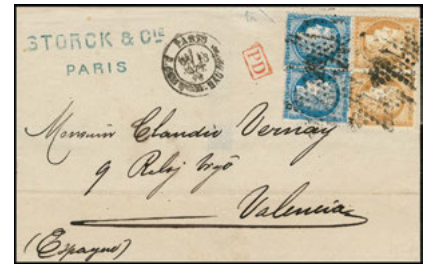 STORCK & CIE
PARIS
PARIS
PD
Monsieur Claudio Vernay
9 Reloj
Valencia
(Espagne)